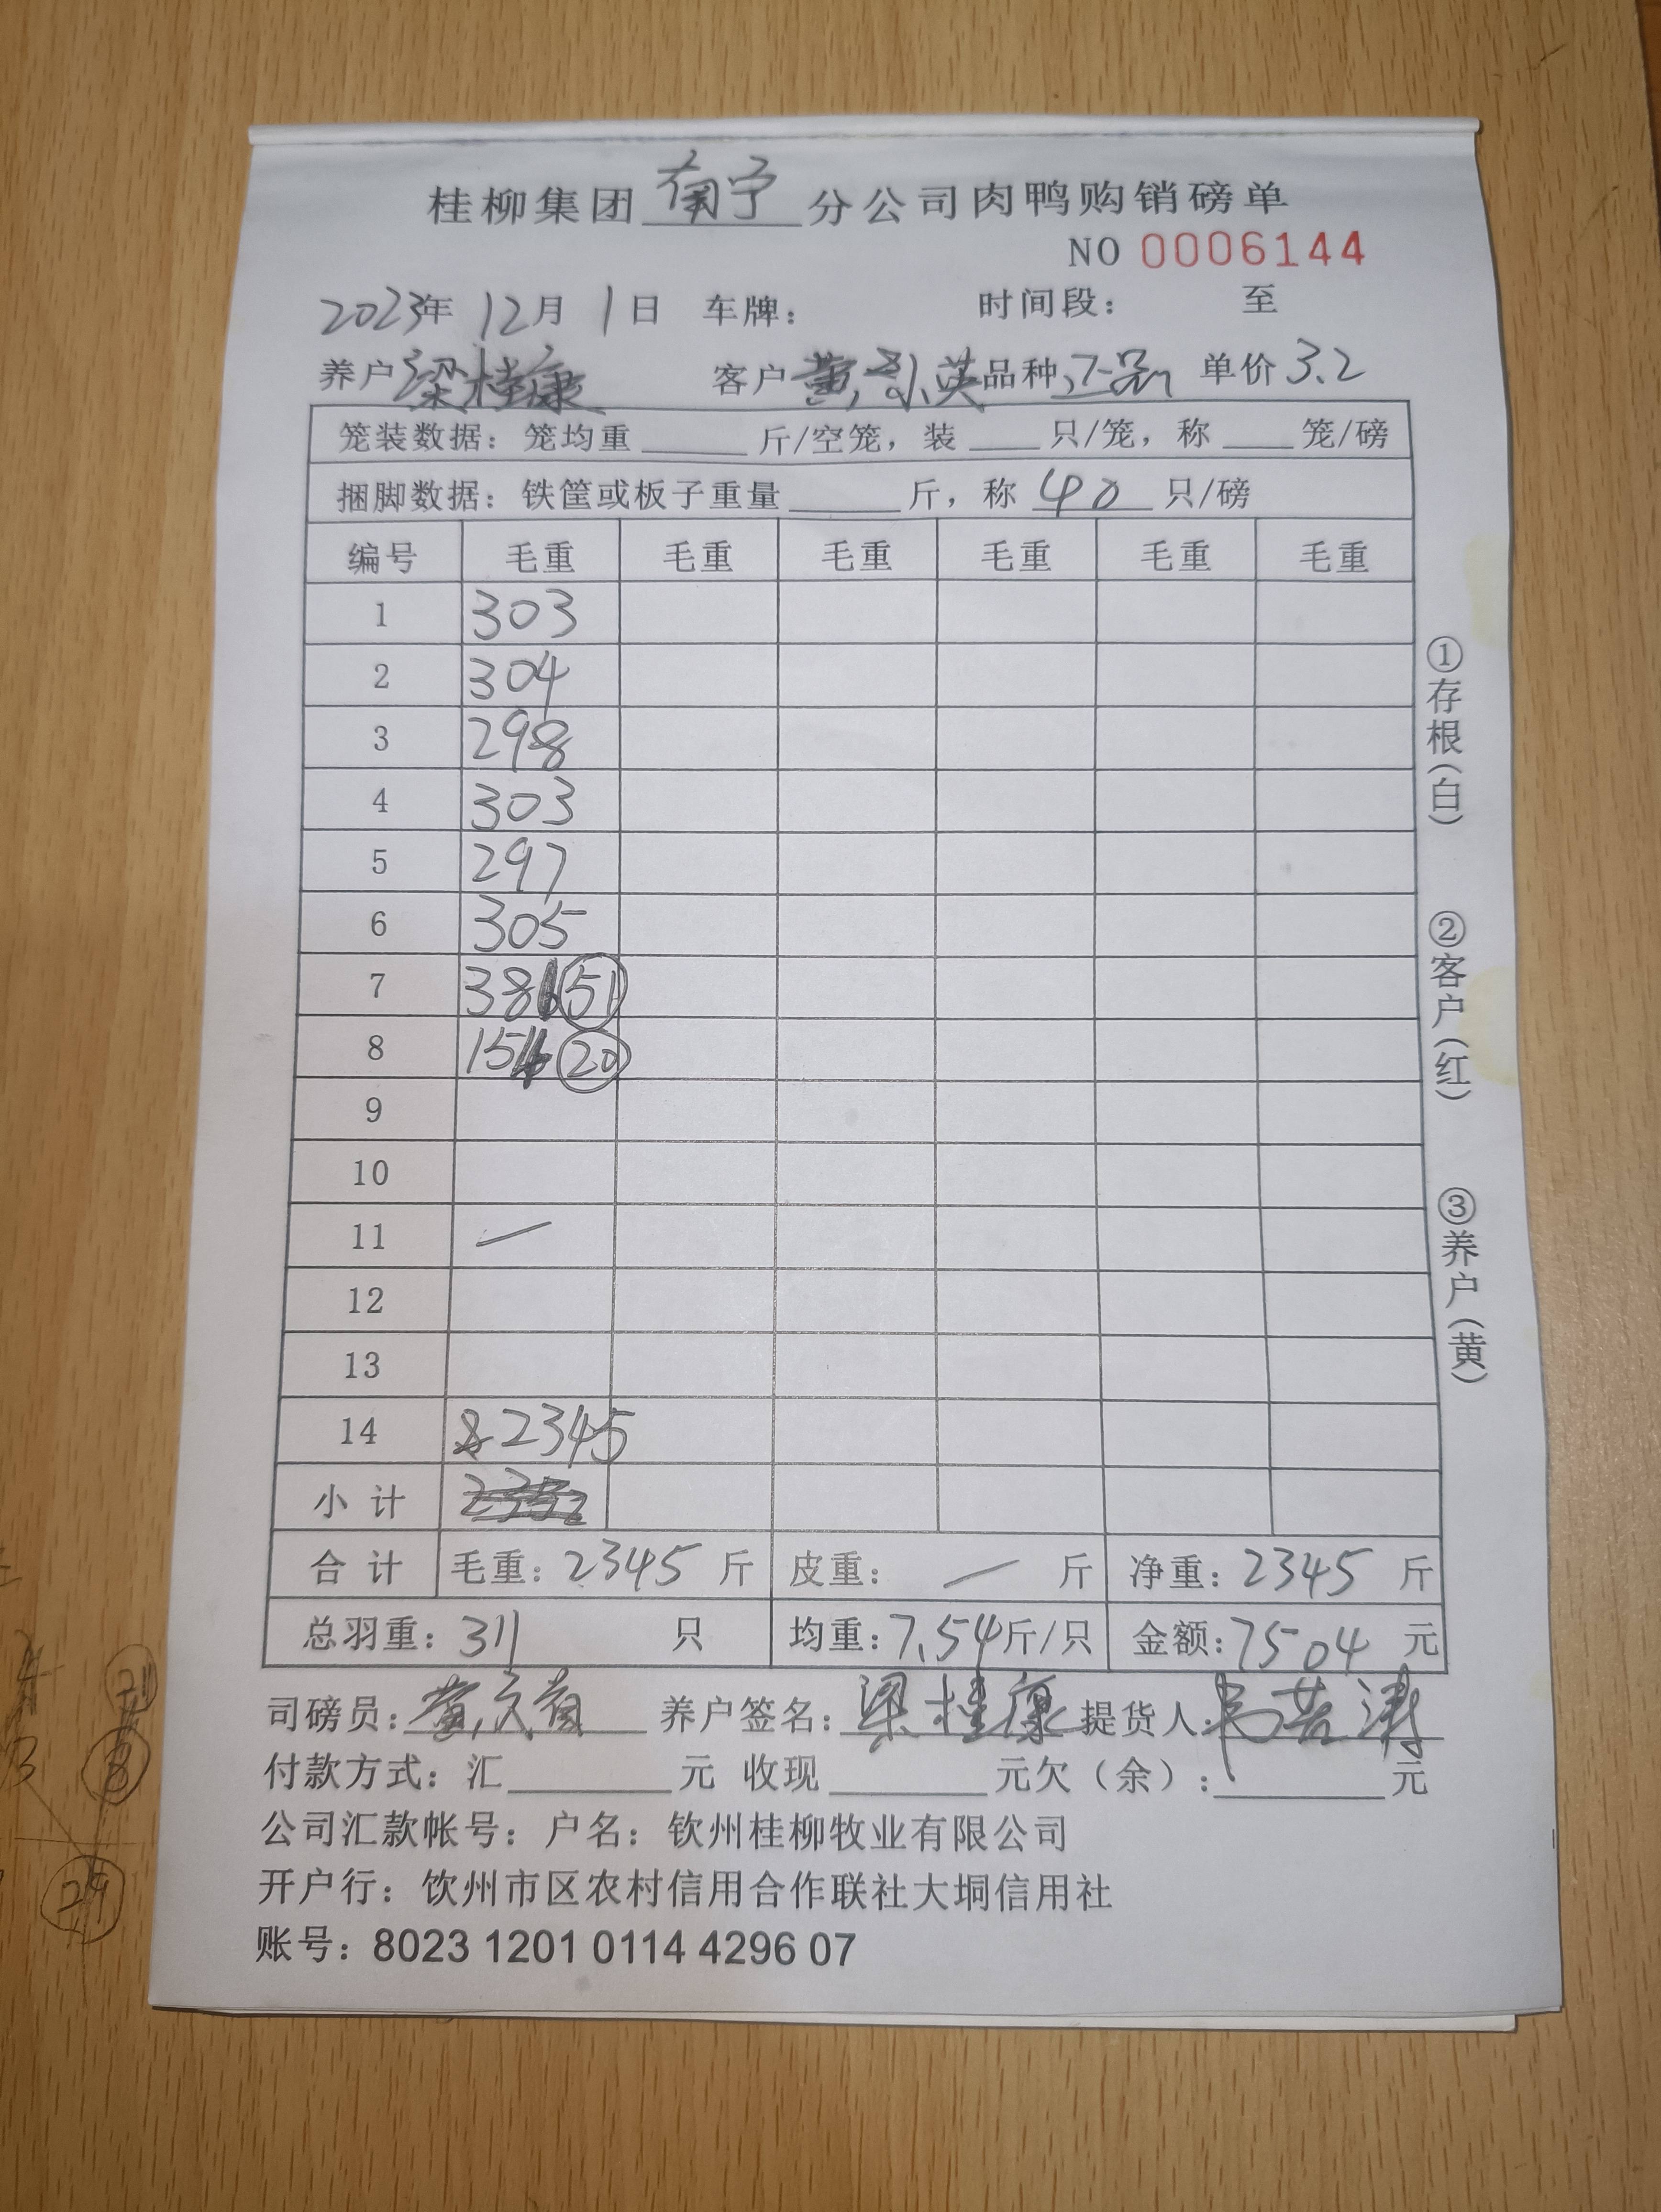 桂柳集团 南宁 分公司肉鸭购销磅单
NO 0006144
2023年 12月 1日 车牌： 时间段： 至
养户 梁桂康 客户 黄 英 品种 单价 3.2
笼装数据：笼均重 斤/空笼，装 只/笼，称 笼/磅
捆脚数据：铁筐或板子重量 斤，称 40 只/磅
编号 毛重 毛重 毛重 毛重 毛重 毛重
1 303
2 304
3 298
4 303
5 297
6 305
7 38 51
8 15 20
9
10
11 —
12
13
14 2345
小计
合计 毛重：2345 斤 皮重： — 斤 净重：2345 斤
总羽重：311 只 均重：7.54斤/只 金额：7504 元
司磅员：黄 养户签名：梁桂康 提货人：
付款方式：汇 元 收现 元欠（余）： 元
公司汇款帐号：户名：钦州桂柳牧业有限公司
开户行：饮州市区农村信用合作联社大垌信用社
账号：8023 1201 0114 4296 07
①存根（白）
②客户（红）
③养户（黄）